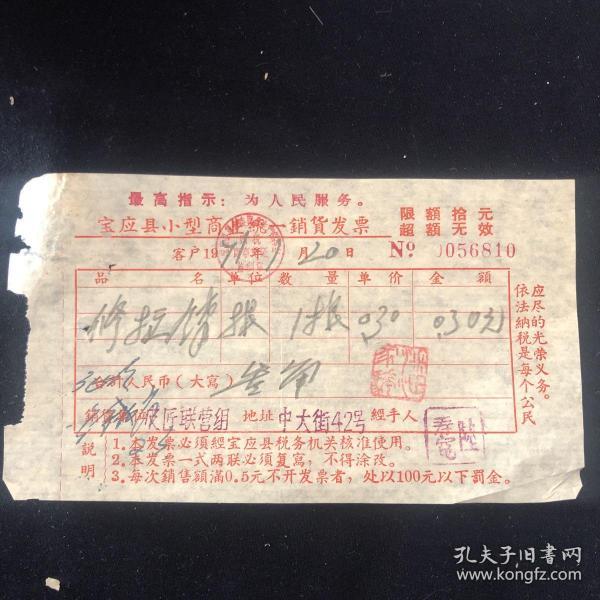 最高指示：为人民服务。
宝应县小型商业统一銷貨发票
限額拾元
超額无效
客户 19 71年 月 20日 № 0056810
品名 单位 数量 单价 金額
修拉锁 根 1根 0.30 0.30元
合計人民币（大寫）叁角
銷貨 皮匠联营组 地址 中大街42号 經手人
說明
1.本发票必須經宝应县税务机关核准使用。
2.本发票一式两联必须复寫，不得涂改。
3.每次銷售額滿0.5元不开发票者，处以100元以下罰金。
依法納税是每个公民
应尽的光荣义务。
孔夫子旧書网
www.kongfz.com